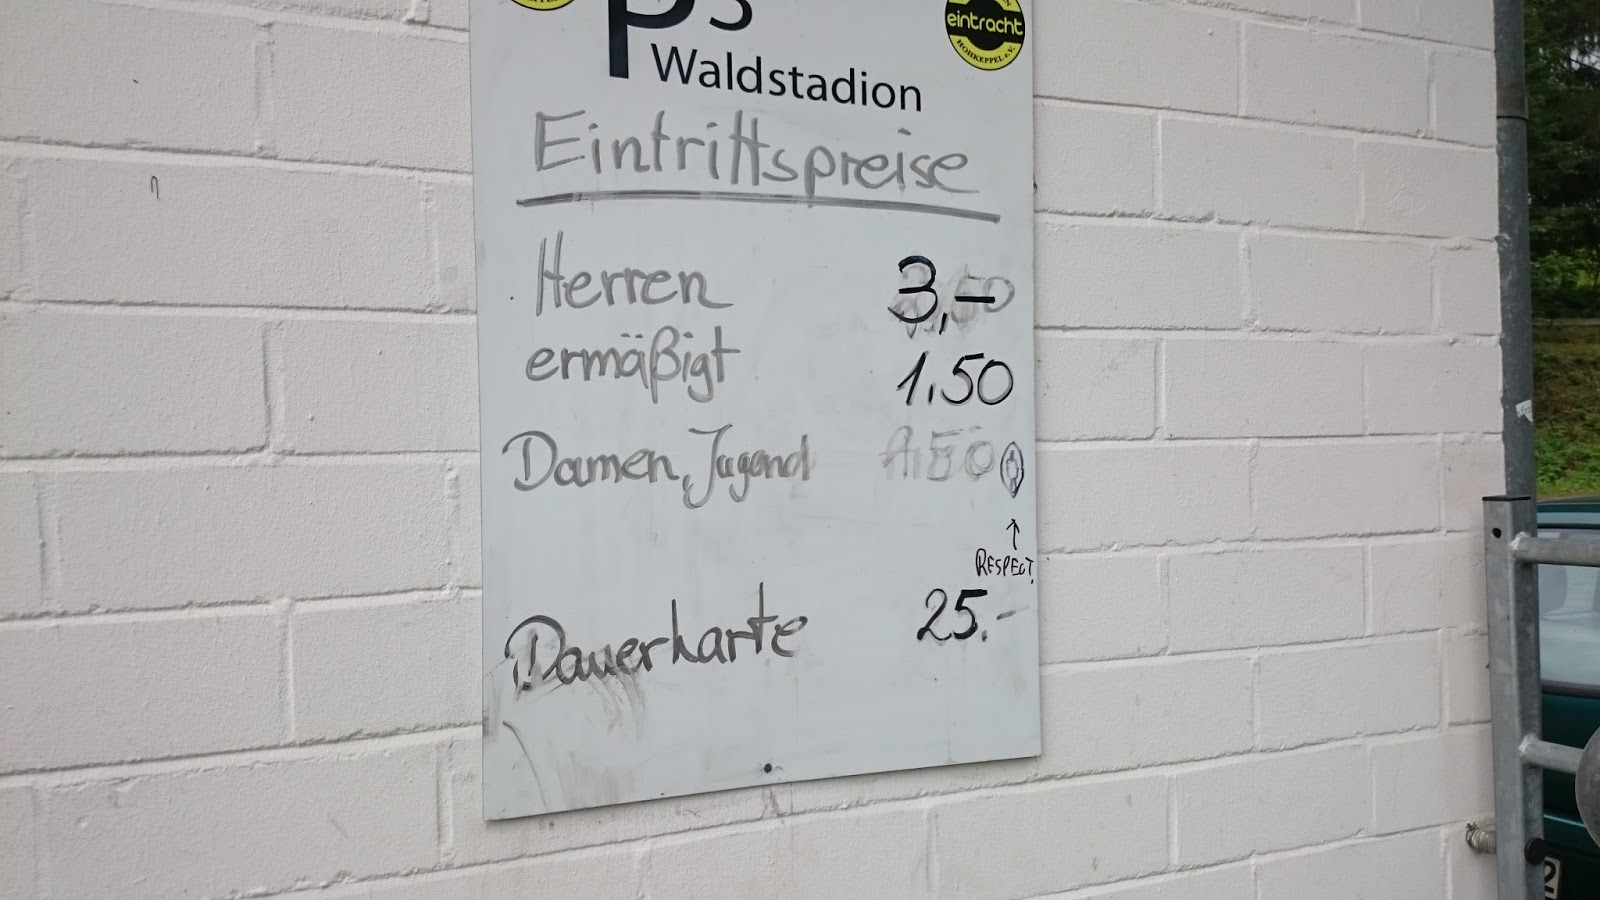 eintracht
HOHKEPPEL e.V.
Waldstadion
Eintrittspreise
Herren 3,-
ermäßigt 1.50
Damen, Jugend 1.50
RESPECT
Dauerkarte 25.-